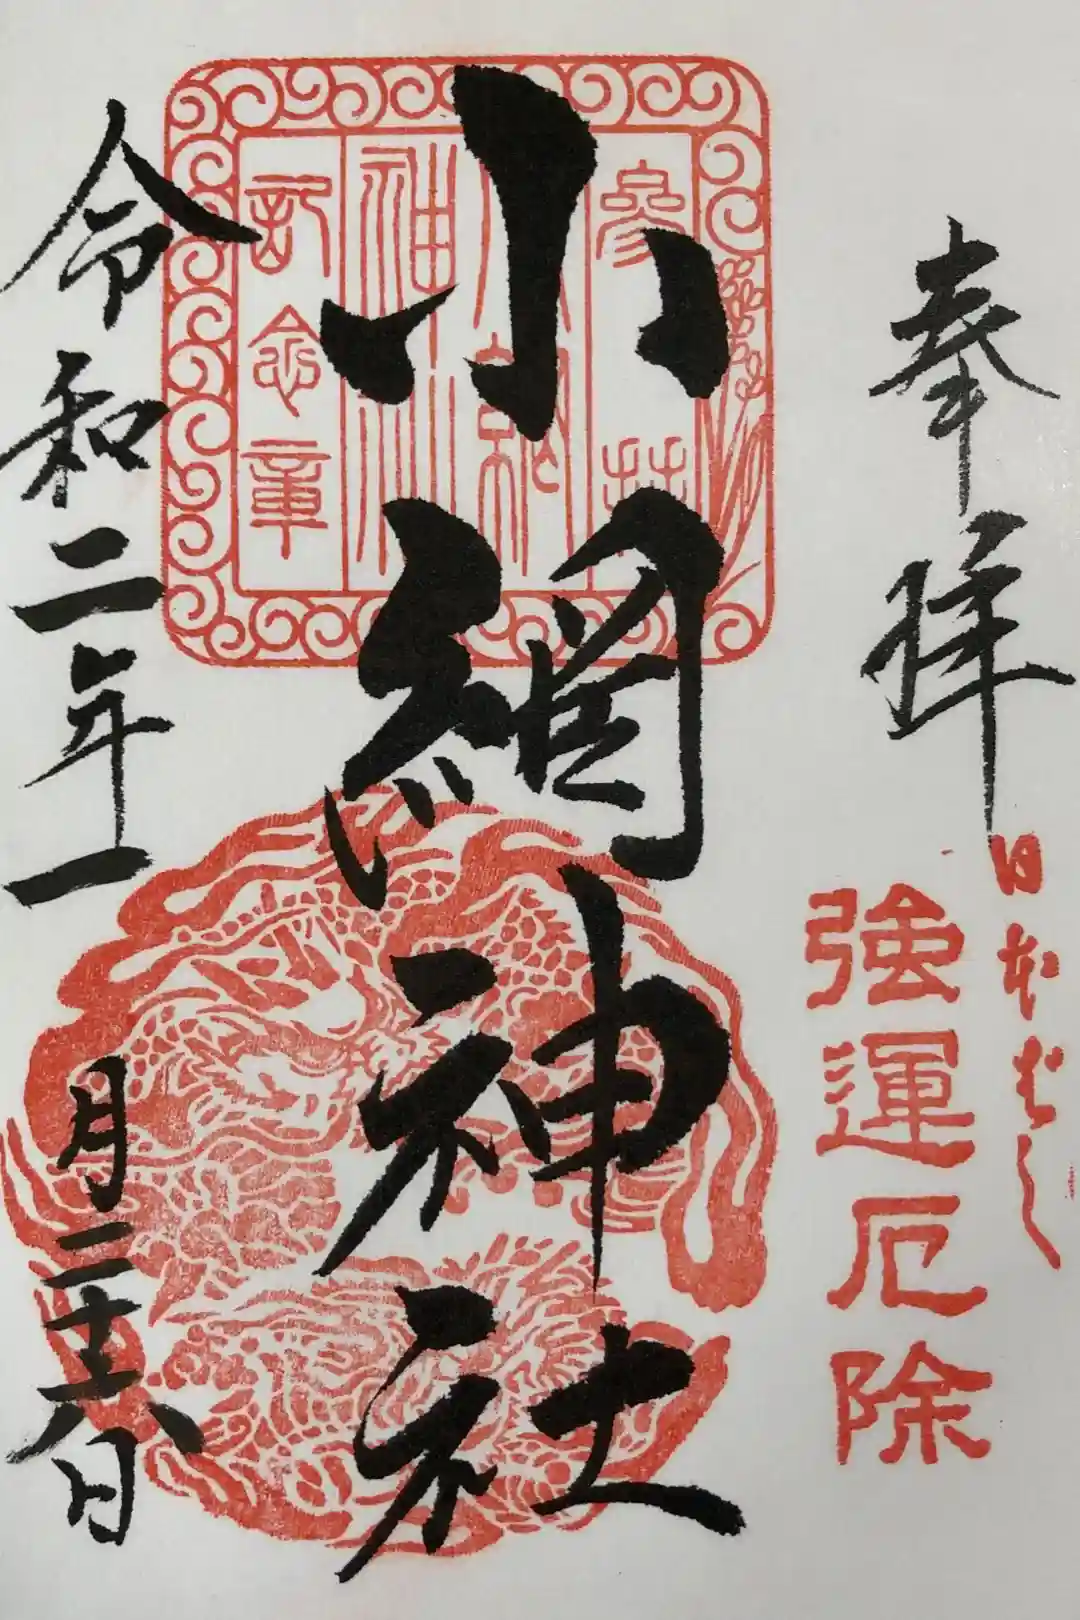 奉拝
日本ばし
強運厄除
小網神社
参拝
小網
神社
記念章
令和二年一月二十六日